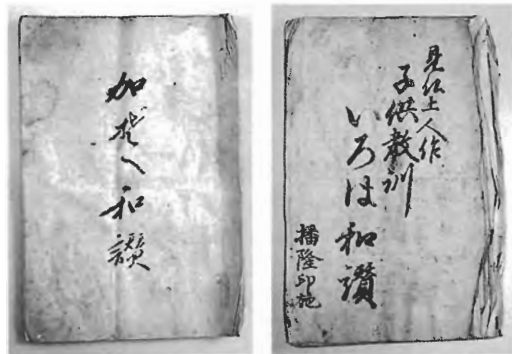 加楚へ和讃
見仏上人作
子供教訓
いろは和讃
播隆印施